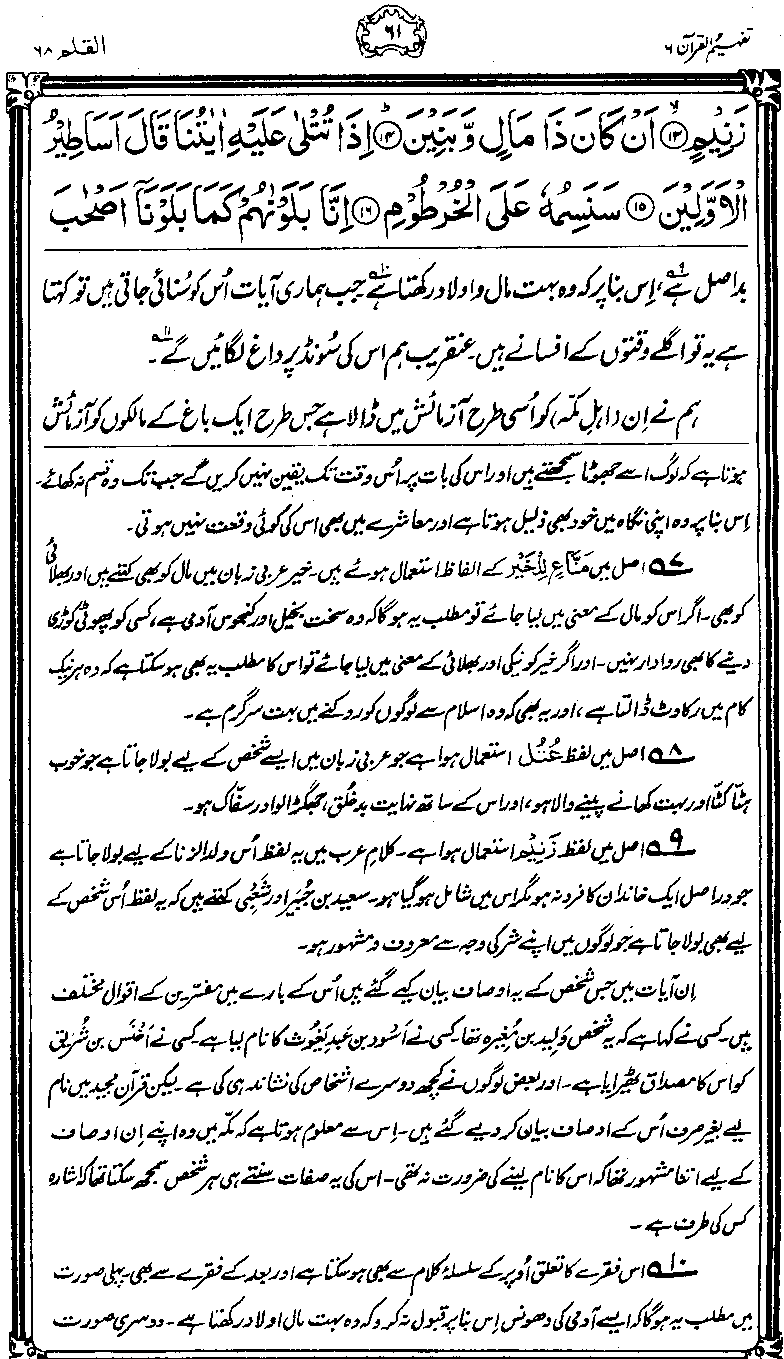 تفہیم القرآن ۶
۶۱
القلم ۶۸
زَنِيْمٍ ۙ﴿۱۳﴾ اَنْ كَانَ ذَا مَالٍ وَّبَنِيْنَ ؕ﴿۱۴﴾ اِذَا تُتْلٰى عَلَيْهِ اٰيٰتُنَا قَالَ اَسَاطِيْرُ
الْاَوَّلِيْنَ ﴿۱۵﴾ سَنَسِمُهٗ عَلَى الْخُرْطُوْمِ ﴿۱۶﴾ اِنَّا بَلَوْنٰهُمْ كَمَا بَلَوْنَاۤ اَصْحٰبَ
بد اصل ہے۹، اِس بنا پر کہ وہ بہت مال و اولاد رکھتا ہے۱۰۔ جب ہماری آیات اُس کو سُنائی جاتی ہیں تو کہتا
ہے یہ تو اگلے وقتوں کے افسانے ہیں۔ عنقریب ہم اس کی سُونڈ پر داغ لگائیں گے۱۱۔
ہم نے اِن (اہلِ مکّہ) کو اُسی طرح آزمائش میں ڈالا ہے جس طرح ایک باغ کے مالکوں کو آزمائش
ہوتا ہے کہ لوگ اسے جھوٹا سمجھتے ہیں اور اس کی بات پر اُس وقت تک یقین نہیں کریں گے جب تک وہ قسم نہ کھائے۔
اِس بنا پر وہ اپنی نگاہ میں خود بھی ذلیل ہوتا ہے اور معاشرے میں بھی اس کی کوئی وقعت نہیں ہوتی۔
۷ اصل میں مَنَّاعٍ لِّلْخَيْرِ کے الفاظ استعمال ہوئے ہیں۔ خیر عربی زبان میں مال کو بھی کہتے ہیں اور بھلائی
کو بھی۔ اگر اس کو مال کے معنی میں لیا جائے تو مطلب یہ ہو گا کہ وہ سخت بخیل اور کنجوس آدمی ہے، کسی کو پھوٹی کوڑی
دینے کا بھی روادار نہیں۔ اور اگر خیر کو نیکی اور بھلائی کے معنی میں لیا جائے تو اس کا مطلب یہ بھی ہو سکتا ہے کہ وہ ہر نیک
کام میں رکاوٹ ڈالتا ہے، اور یہ بھی کہ وہ اسلام سے لوگوں کو روکنے میں بہت سرگرم ہے۔
۸ اصل میں لفظ عُتُلّ استعمال ہوا ہے جو عربی زبان میں ایسے شخص کے لیے بولا جاتا ہے جو خوب
ہٹّا کٹّا اور بہت کھانے پینے والا ہو، اور اس کے ساتھ نہایت بدخُلق، جھگڑالو اور سفّاک ہو۔
۹ اصل میں لفظ زَنِیْم استعمال ہوا ہے۔ کلامِ عرب میں یہ لفظ اُس ولد الزنا کے لیے بولا جاتا ہے
جو دراصل ایک خاندان کا فرد نہ ہو مگر اس میں شامل ہو گیا ہو۔ سعید بن جُبَیر اور شَعْبِی کہتے ہیں کہ یہ لفظ اُس شخص کے
لیے بھی بولا جاتا ہے جو لوگوں میں اپنے شر کی وجہ سے معروف و مشہور ہو۔
اِن آیات میں جس شخص کے یہ اوصاف بیان کیے گئے ہیں اُس کے بارے میں مفسّرین کے اقوال مختلف
ہیں۔ کسی نے کہا ہے کہ یہ شخص وَلید بن مُغیرہ تھا۔ کسی نے اَسْوَد بن عبدِ یَغوث کا نام لیا ہے۔ کسی نے اَخْنَس بن شُرَیق
کو اس کا مصداق ٹھیرایا ہے۔ اور بعض لوگوں نے کچھ دوسرے اشخاص کی نشاندہی کی ہے۔ لیکن قرآن مجید میں نام
لیے بغیر صرف اُس کے اوصاف بیان کر دیے گئے ہیں۔ اِس سے معلوم ہوتا ہے کہ مکّہ میں وہ اپنے اِن اوصاف
کے لیے اتنا مشہور تھا کہ اس کا نام لینے کی ضرورت نہ تھی۔ اس کی یہ صفات سنتے ہی ہر شخص سمجھ سکتا تھا کہ اشارہ
کس کی طرف ہے۔
۱۰ اس فقرے کا تعلق اُوپر کے سلسلۂ کلام سے بھی ہو سکتا ہے اور بعد کے فقرے سے بھی۔ پہلی صورت
میں مطلب یہ ہو گا کہ ایسے آدمی کی دھونس اِس بنا پر قبول نہ کرو کہ وہ بہت مال اولاد رکھتا ہے۔ دوسری صورت